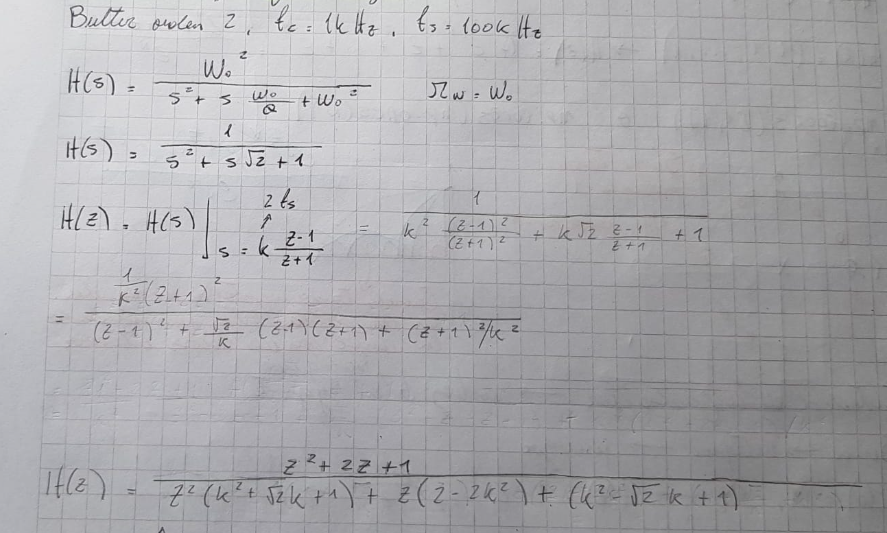 Butter orden 2, fc = 1k Hz, fs = 100k Hz
H(s) = W₀² / (s² + s W₀/Q + W₀²)    Ωw = W₀
H(s) = 1 / (s² + s √2 + 1)
H(z) = H(s) | s = k (z-1)/(z+1)  ↑ 2 fs  = 1 / (k² (z-1)²/(z+1)² + k√2 (z-1)/(z+1) + 1)
= 1/k² (z+1)² / ((z-1)² + √2/k (z-1)(z+1) + (z+1)²/k²)
H(z) = (z² + 2z + 1) / (z² (k² + √2k + 1) + z(2 - 2k²) + (k² - √2 k + 1))